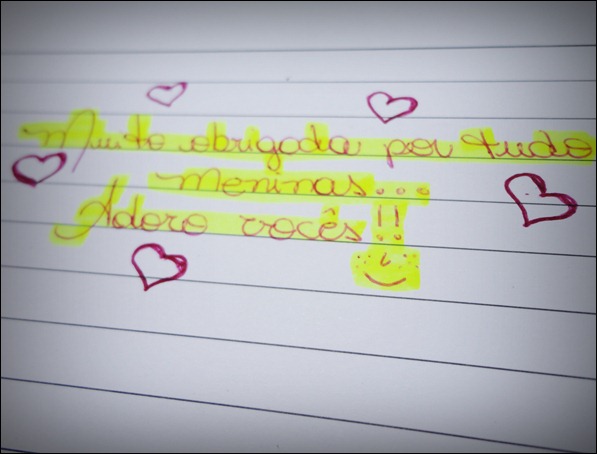 Muito obrigada por tudo
meninas...
Adoro vocês!!